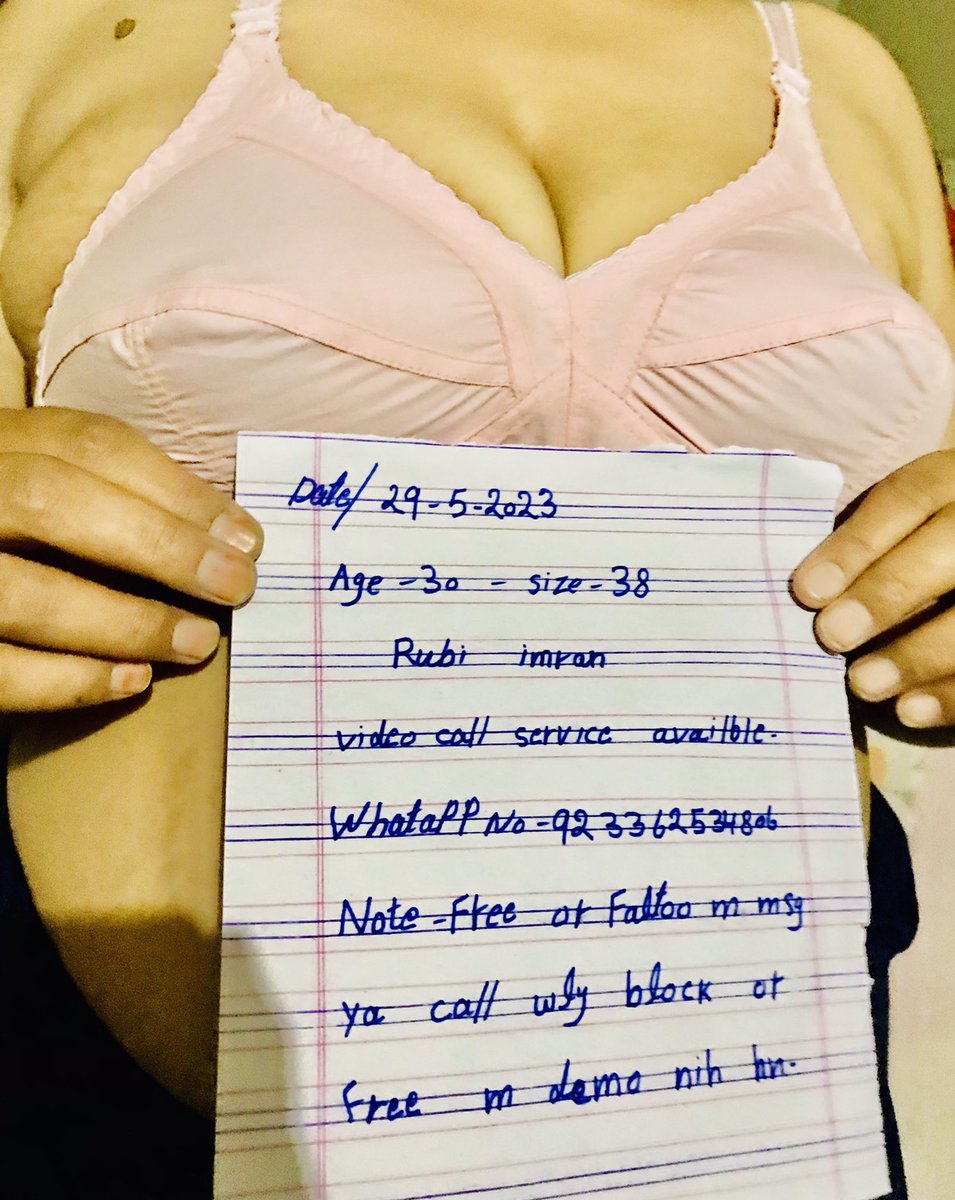 Date/ 29-5-2023
Age -30 - size-38
Rubi imran
video call service availble.
WhataPP No-923362534806
Note-Free or Faltoo m msg
ya call wly block or
free m demo nih hn.